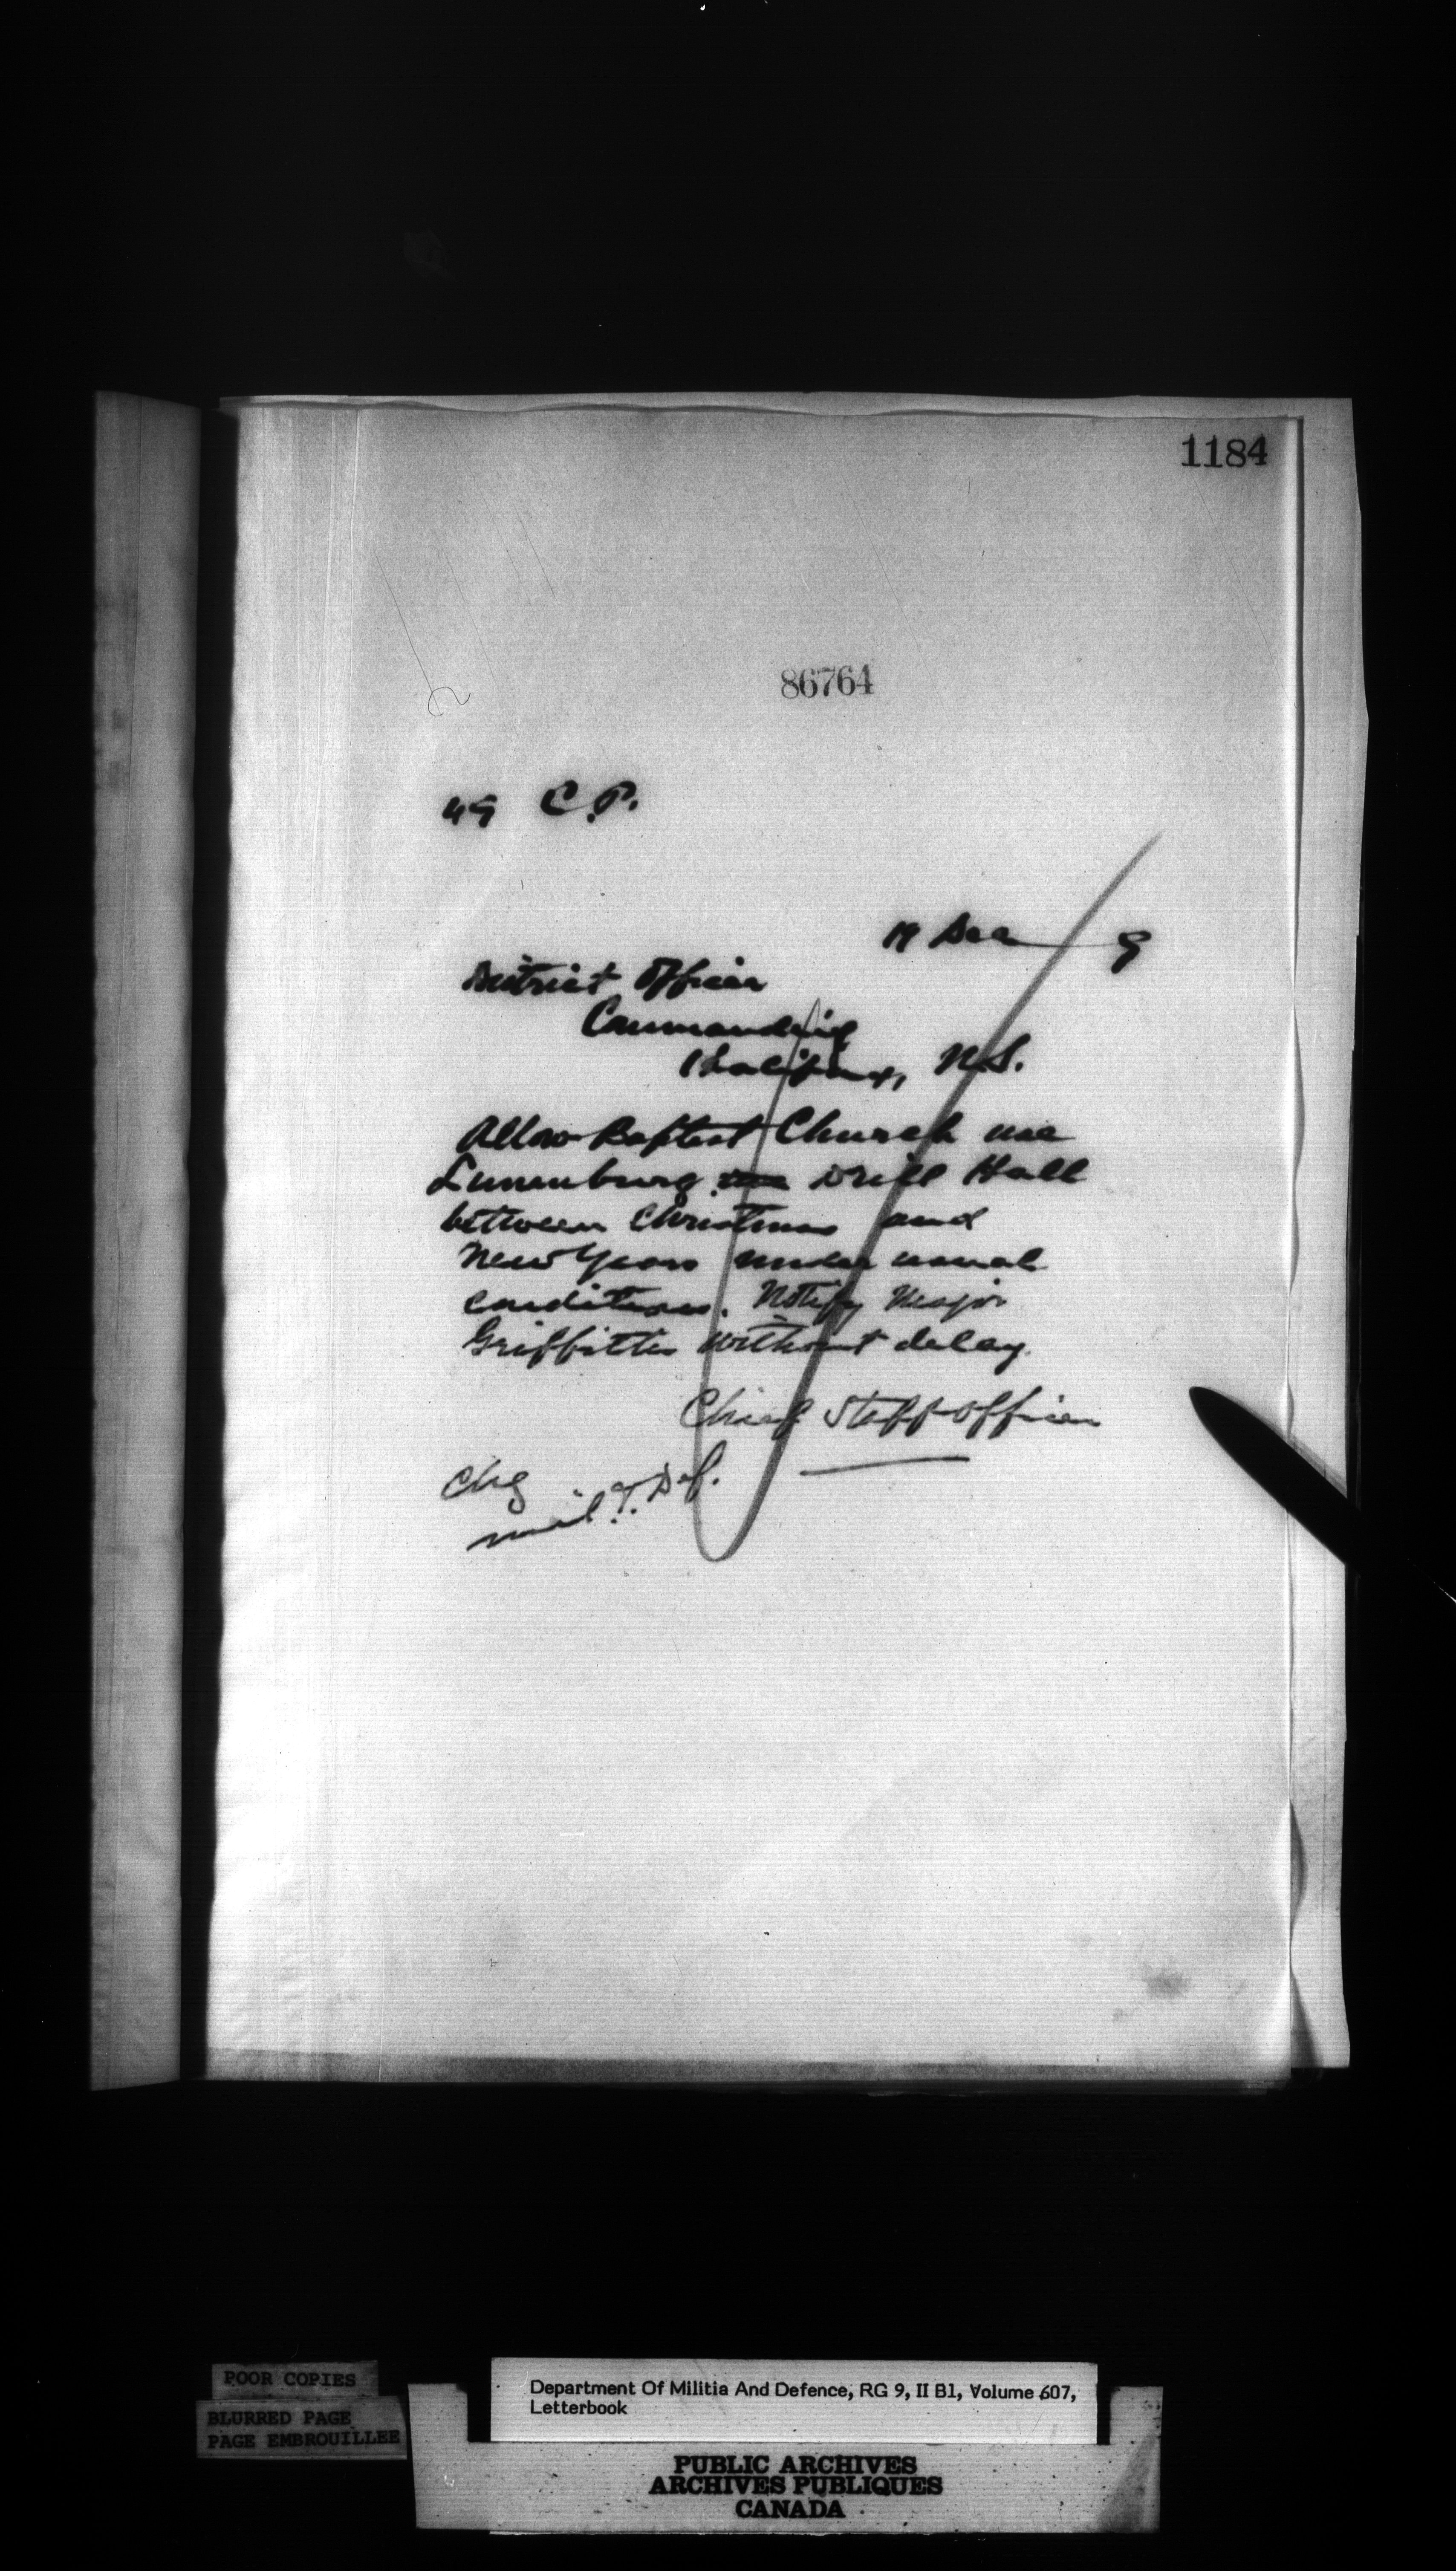 1184
86764
49 C.P.
19 Dec 9
District Officer
Commanding
Halifax, N.S.
Allow Baptist Church use
Lunenburg Drill Hall
between Christmas and
New Years under usual
conditions. Notify Major
Griffiths without delay.
Chief Staff Officer
Chg
Mil. & Def.
POOR COPIES
BLURRED PAGE
PAGE EMBROUILLEE
Department Of Militia And Defence, RG 9, II B1, Volume 607,
Letterbook
PUBLIC ARCHIVES
ARCHIVES PUBLIQUES
CANADA